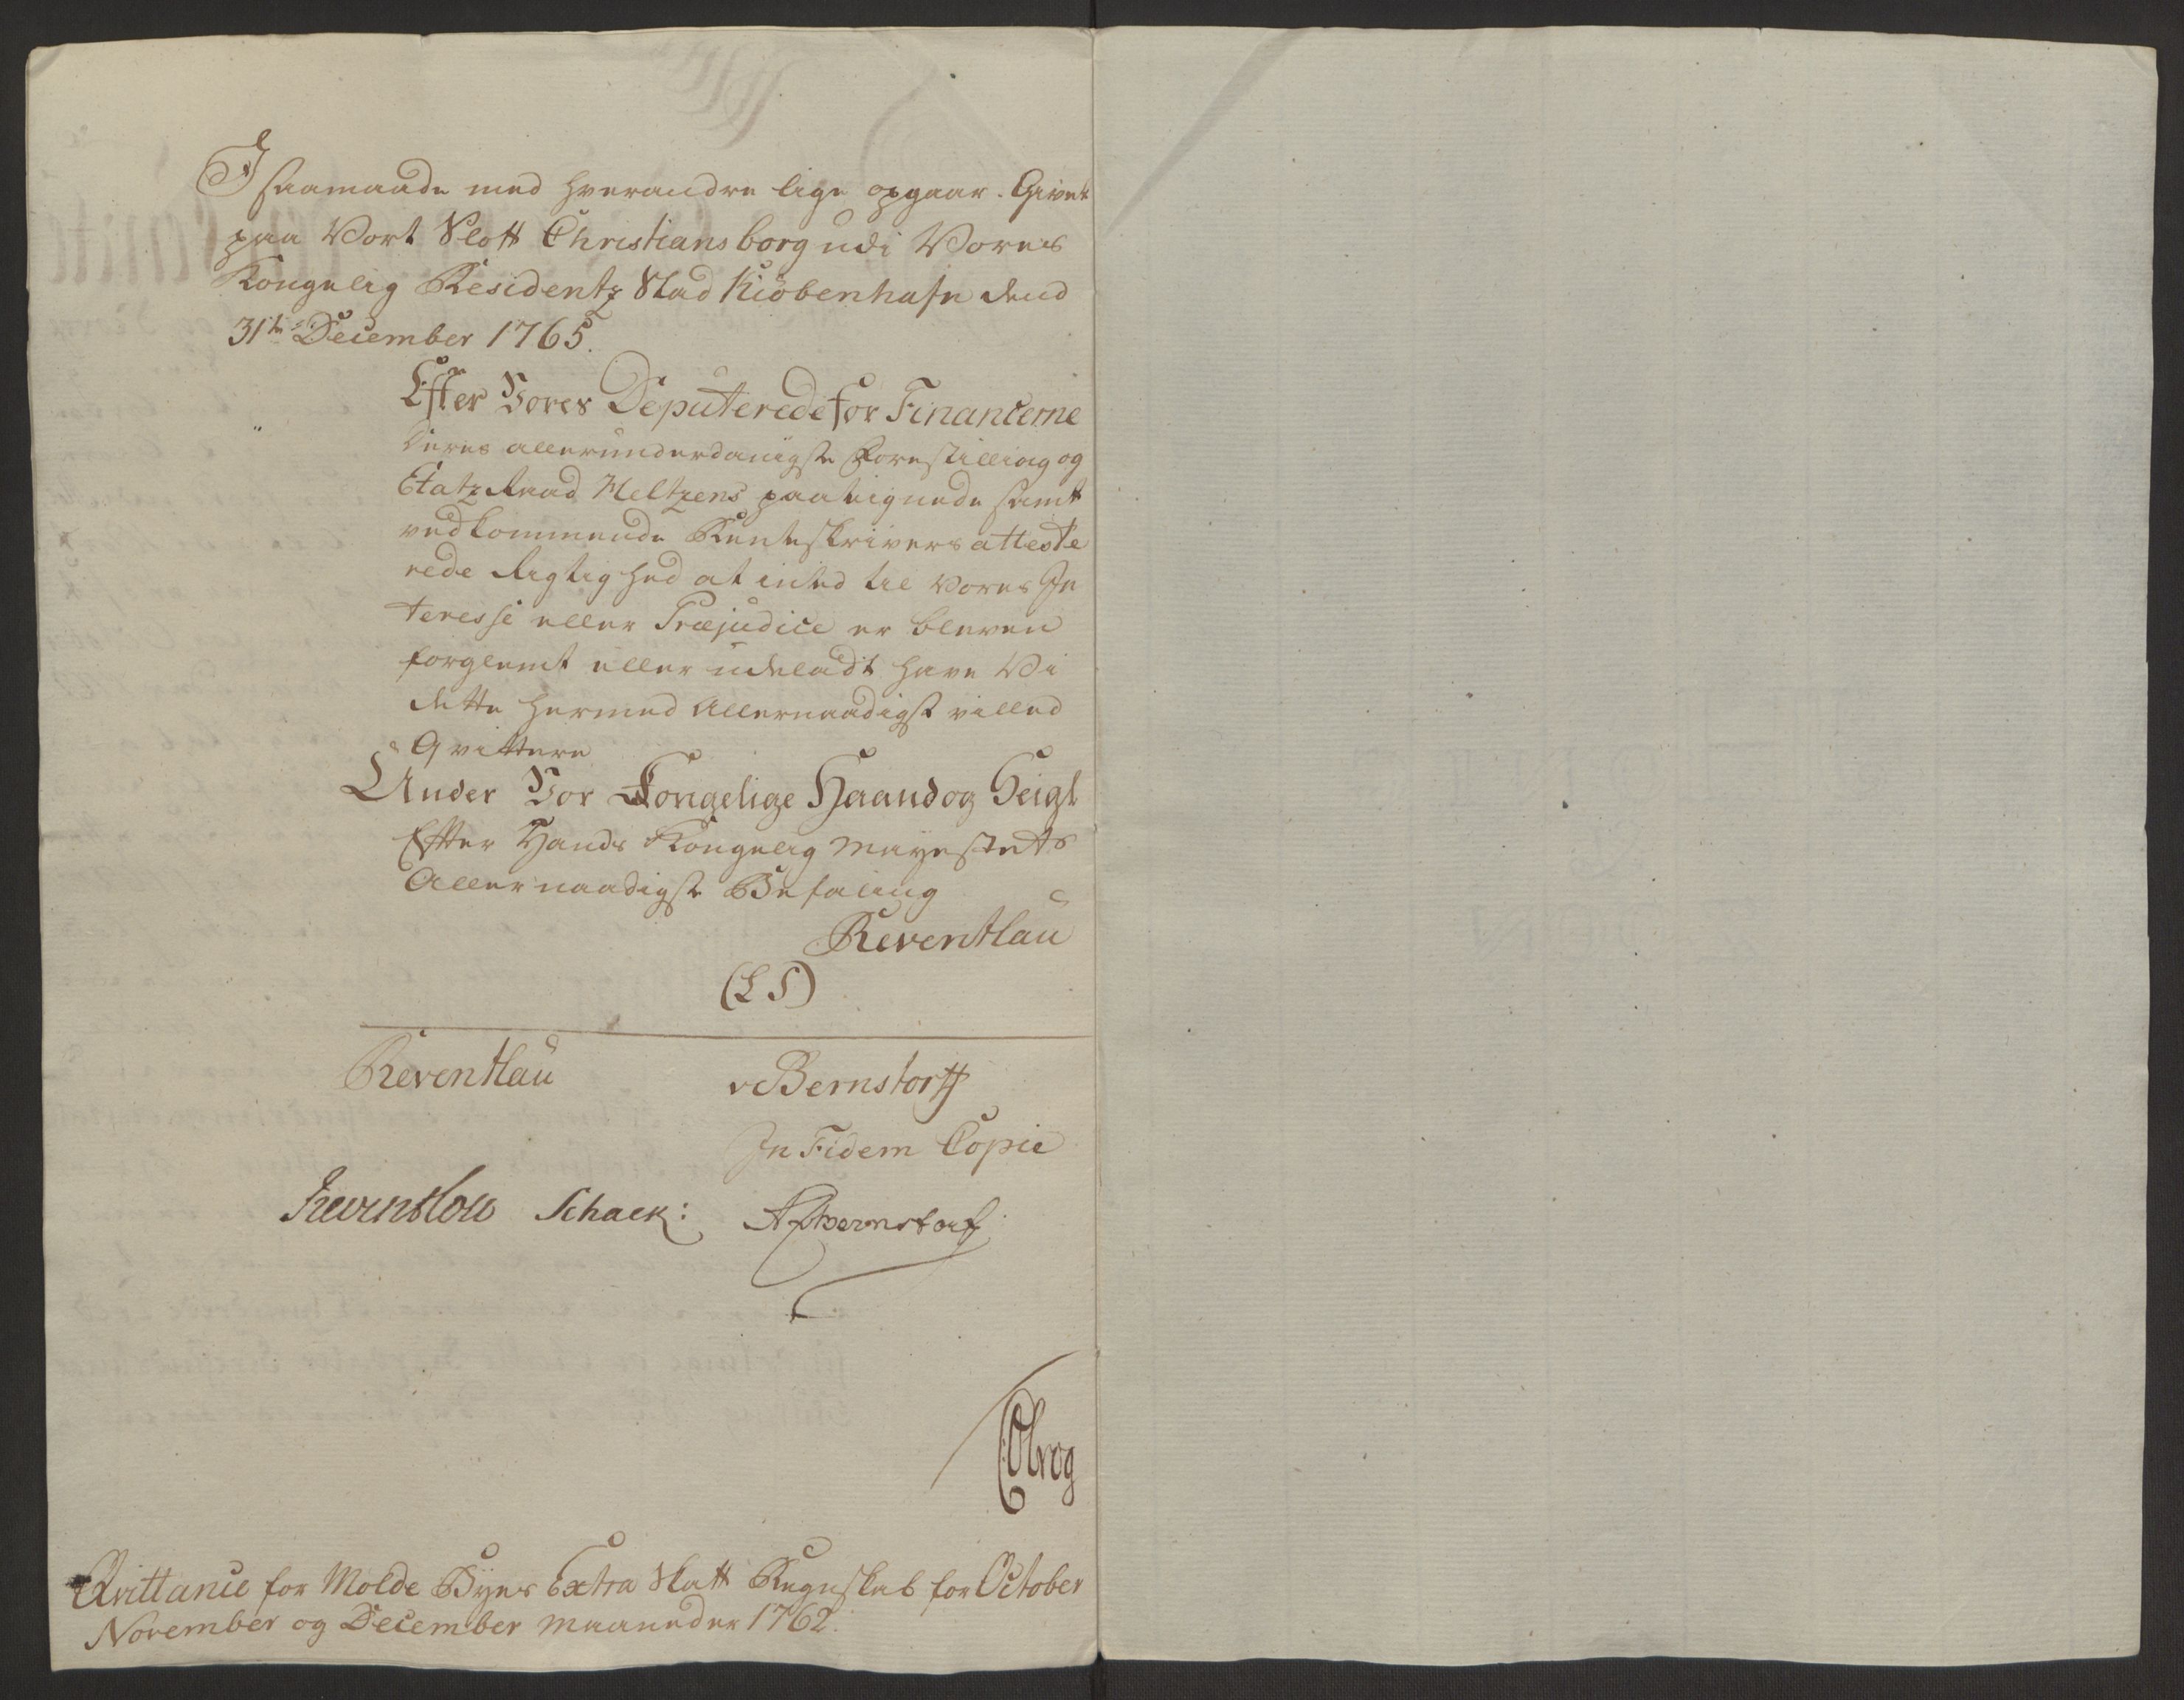 I saamaade med hverandre lige opgaar. Givet
paa Vort Slott Christiansborg udi Vores
Kongelig Residentz Stad Kiöbenhafn dend
31te December 1765.
Efter Vores Deputerede for Financerne
deres allerunderdanigste Forestilling og
Etatz Raad Heltzens paateignede samt
vedkommende Renteskrivers atteste
rede Rigtighed at inted til Vores In
teresse eller Præjudice er bleven
forglemt eller udeladt have Vi
dette hermed Allernaadigst villed
Qvittere
Under Vor Kongelige Haand og Seigl
Efter Hands Kongelig Mayestets
Allernaadigste Befaling
Reventlau
(L S)
Reventlau vBernstorff
In Fidem Copie
Reventlou Schack: APBernstorf
Qvittance for Molde Byes Extra Skatt Regnskab for October
November og December Maaneder 1762.